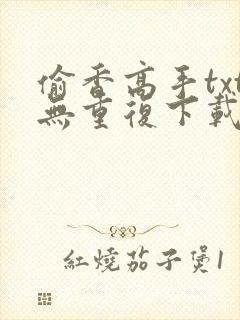 偷香高手txt
無重復下載
紅燒茄子煲1